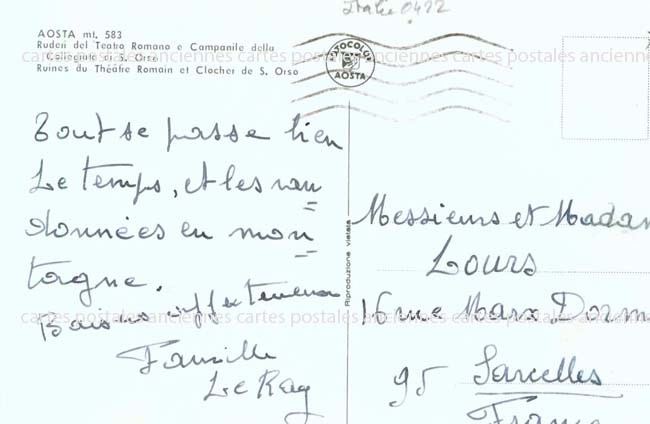 Italie 0422
AOSTA mt. 583
Ruderi del Teatro Romano e Campanile della
Collegiata di S. Orso
Ruines du Théâtre Romain et Clocher de S. Orso
cartes postales anciennes cartes postales anciennes cartes postales anciennes
FOTOCOLOR
AOSTA
Tout se passe bien
Le temps, et les ran
données en mon
tagne.
Baisers affectueux
Famille
Le Ray
Riproduzione vietata
Messieurs et Madam
Lours
16 rue Marx Dorm
95 Sarcelles
France
cartes postales anciennes cartes postales anciennes cartes postales anciennes